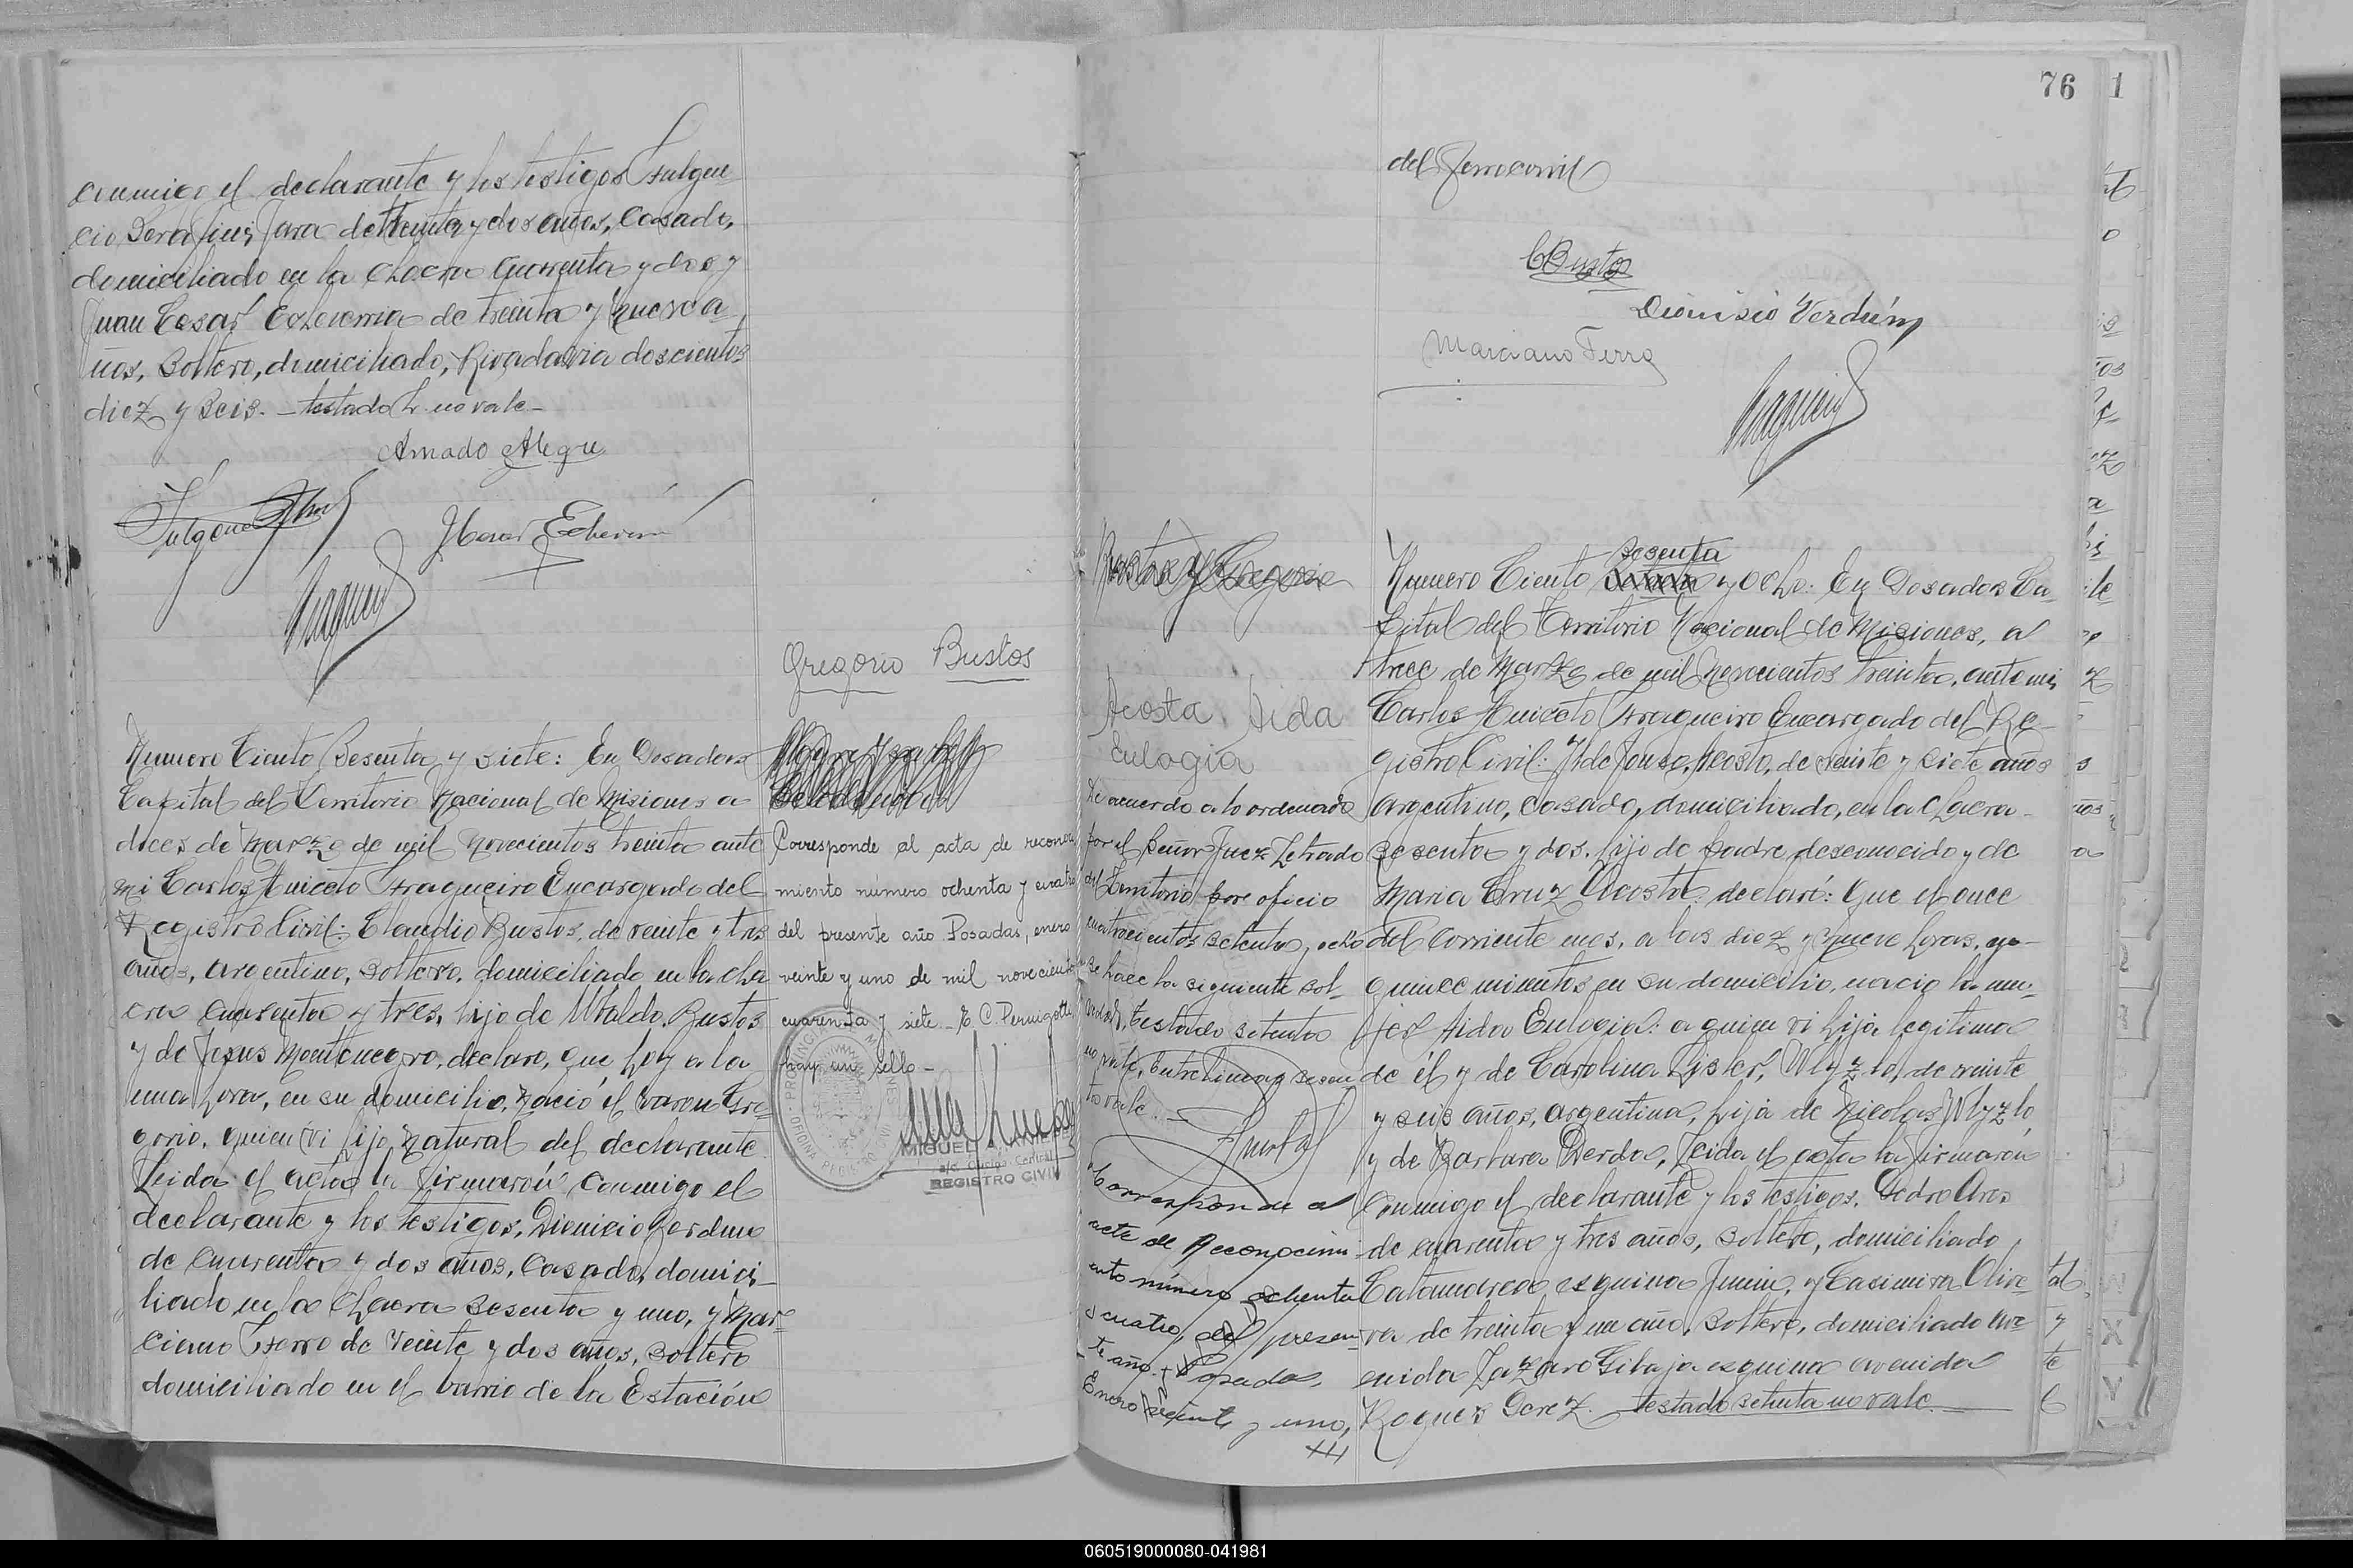 conmigo el declarante y los testigos Fulgen
cio Serafin Jara de treinta y dos años, casado,
domiciliado en la chacra cuarenta y dos y
Juan Cesar Echeverria de treinta y nueve a
ños, soltero, domiciliado, Rivadavia doscientos
diez y seis. _ testado h no vale _
Amado Alegre
Numero Ciento Sesenta y siete: En Posadas
Capital del Territorio Nacional de Misiones a
doces de Marzo de mil novecientos treinta ante
mi Carlos Aniceto Fragueiro Encargado del
Registro Civil: Claudio Bustos, de veinte y tres
años, argentino, soltero, domiciliado en la cha
cra cuarenta y tres, hijo de Ubaldo Bustos
y de Jesus Montenegro, declaro, que hoy a la
una hora, en su domicilio, nació el varon Gre-
gorio, quien vi hijo natural del declarante
Leida el acta la firmarón conmigo el
declarante y los testigos, Dionicio Verdun
de cuarenta y dos años, casado, domici-
liado en la chacra sesenta y uno, y Mar-
ciano Ferro de veinte y dos años, soltero
domiciliado en el barrio de la Estación
Gregorio Bustos
Corresponde al acta de reconoci
miento número ochenta y cuatro
del presente año. Posadas, enero
veinte y uno de mil novecientos
cuarenta y siete _ C. Pernigotti
hay un sello _
MIGUEL A.
a/c Oficina Central
REGISTRO CIVIL
76
1
del ferrocarril
CBustos
Dionisio Verdún
Marciano Ferro
Acosta, Aida
Eulogia
De acuerdo a lo ordenado
por el Señor Juez Letrado
del Territorio por oficio
cuatrocientos setenta y ocho
se hace la siguiente sal-
vedad, testado setenta
no vale, Entre lineas sesen
ta vale. _
Corresponde al
acta de Reconocimi
ento número ochenta
y cuatro, del presen-
te año. Posadas,
Enero veinte y uno,
sesenta
Numero Ciento setenta y ocho: En Posadas Ca-
pital del Territorio Nacional de Misiones, a
trece de Marzo de mil novecientos treinta, ante mi
Carlos Aniceto Fragueiro Encargado del Re-
gistro Civil: Ildefonso Acosta, de veinte y siete años
argentino, casado, domiciliado, en la chacra
sesenta y dos, hijo de padre desconocido y de
Maria Cruz Acosta declaró: Que el once
del corriente mes, a las diez y nueve horas,
quince minutos en su domicilio, nacio la mu-
jer Aida Eulogia: a quien vi hija legitima
de él y de Carolina Wlyzlo, de veinte
y seis años, argentina, hija de Nicolas Wlyzlo,
y de Barbara Derda, Leida el acta la firmarón
conmigo el declarante y los testigos, Pedro Ares
de cuarenta y tres años, soltero, domiciliado
Catamarca esquina Junin, y Casimira Olive-
ra de treinta y un año, soltero, domiciliado ave
enida Lazaro Gibaja esquina avenida
Roques Perez. _ testado setenta no vale. _
060519000080-041981